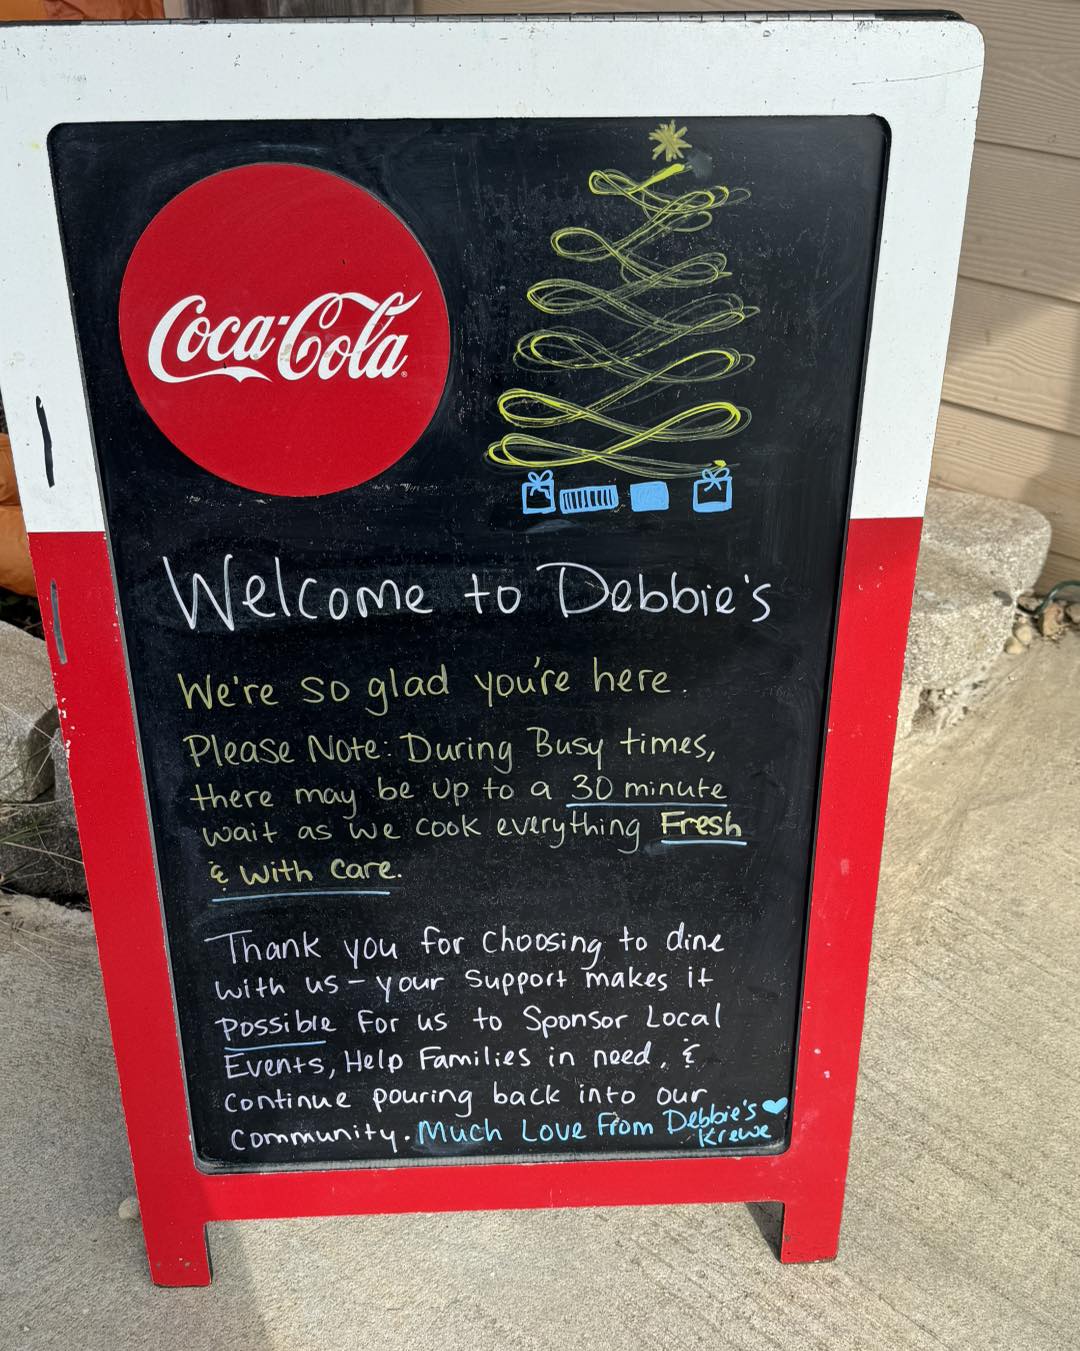 Coca-Cola
Welcome to Debbie's
We're so glad you're here.
Please Note: During Busy times,
there may be up to a 30 minute
wait as we cook everything Fresh
& With Care.
Thank you for choosing to dine
with us - your support makes it
possible for us to Sponsor Local
Events, Help Families in need, &
continue pouring back into our
community. Much Love From Debbie's
Krewe